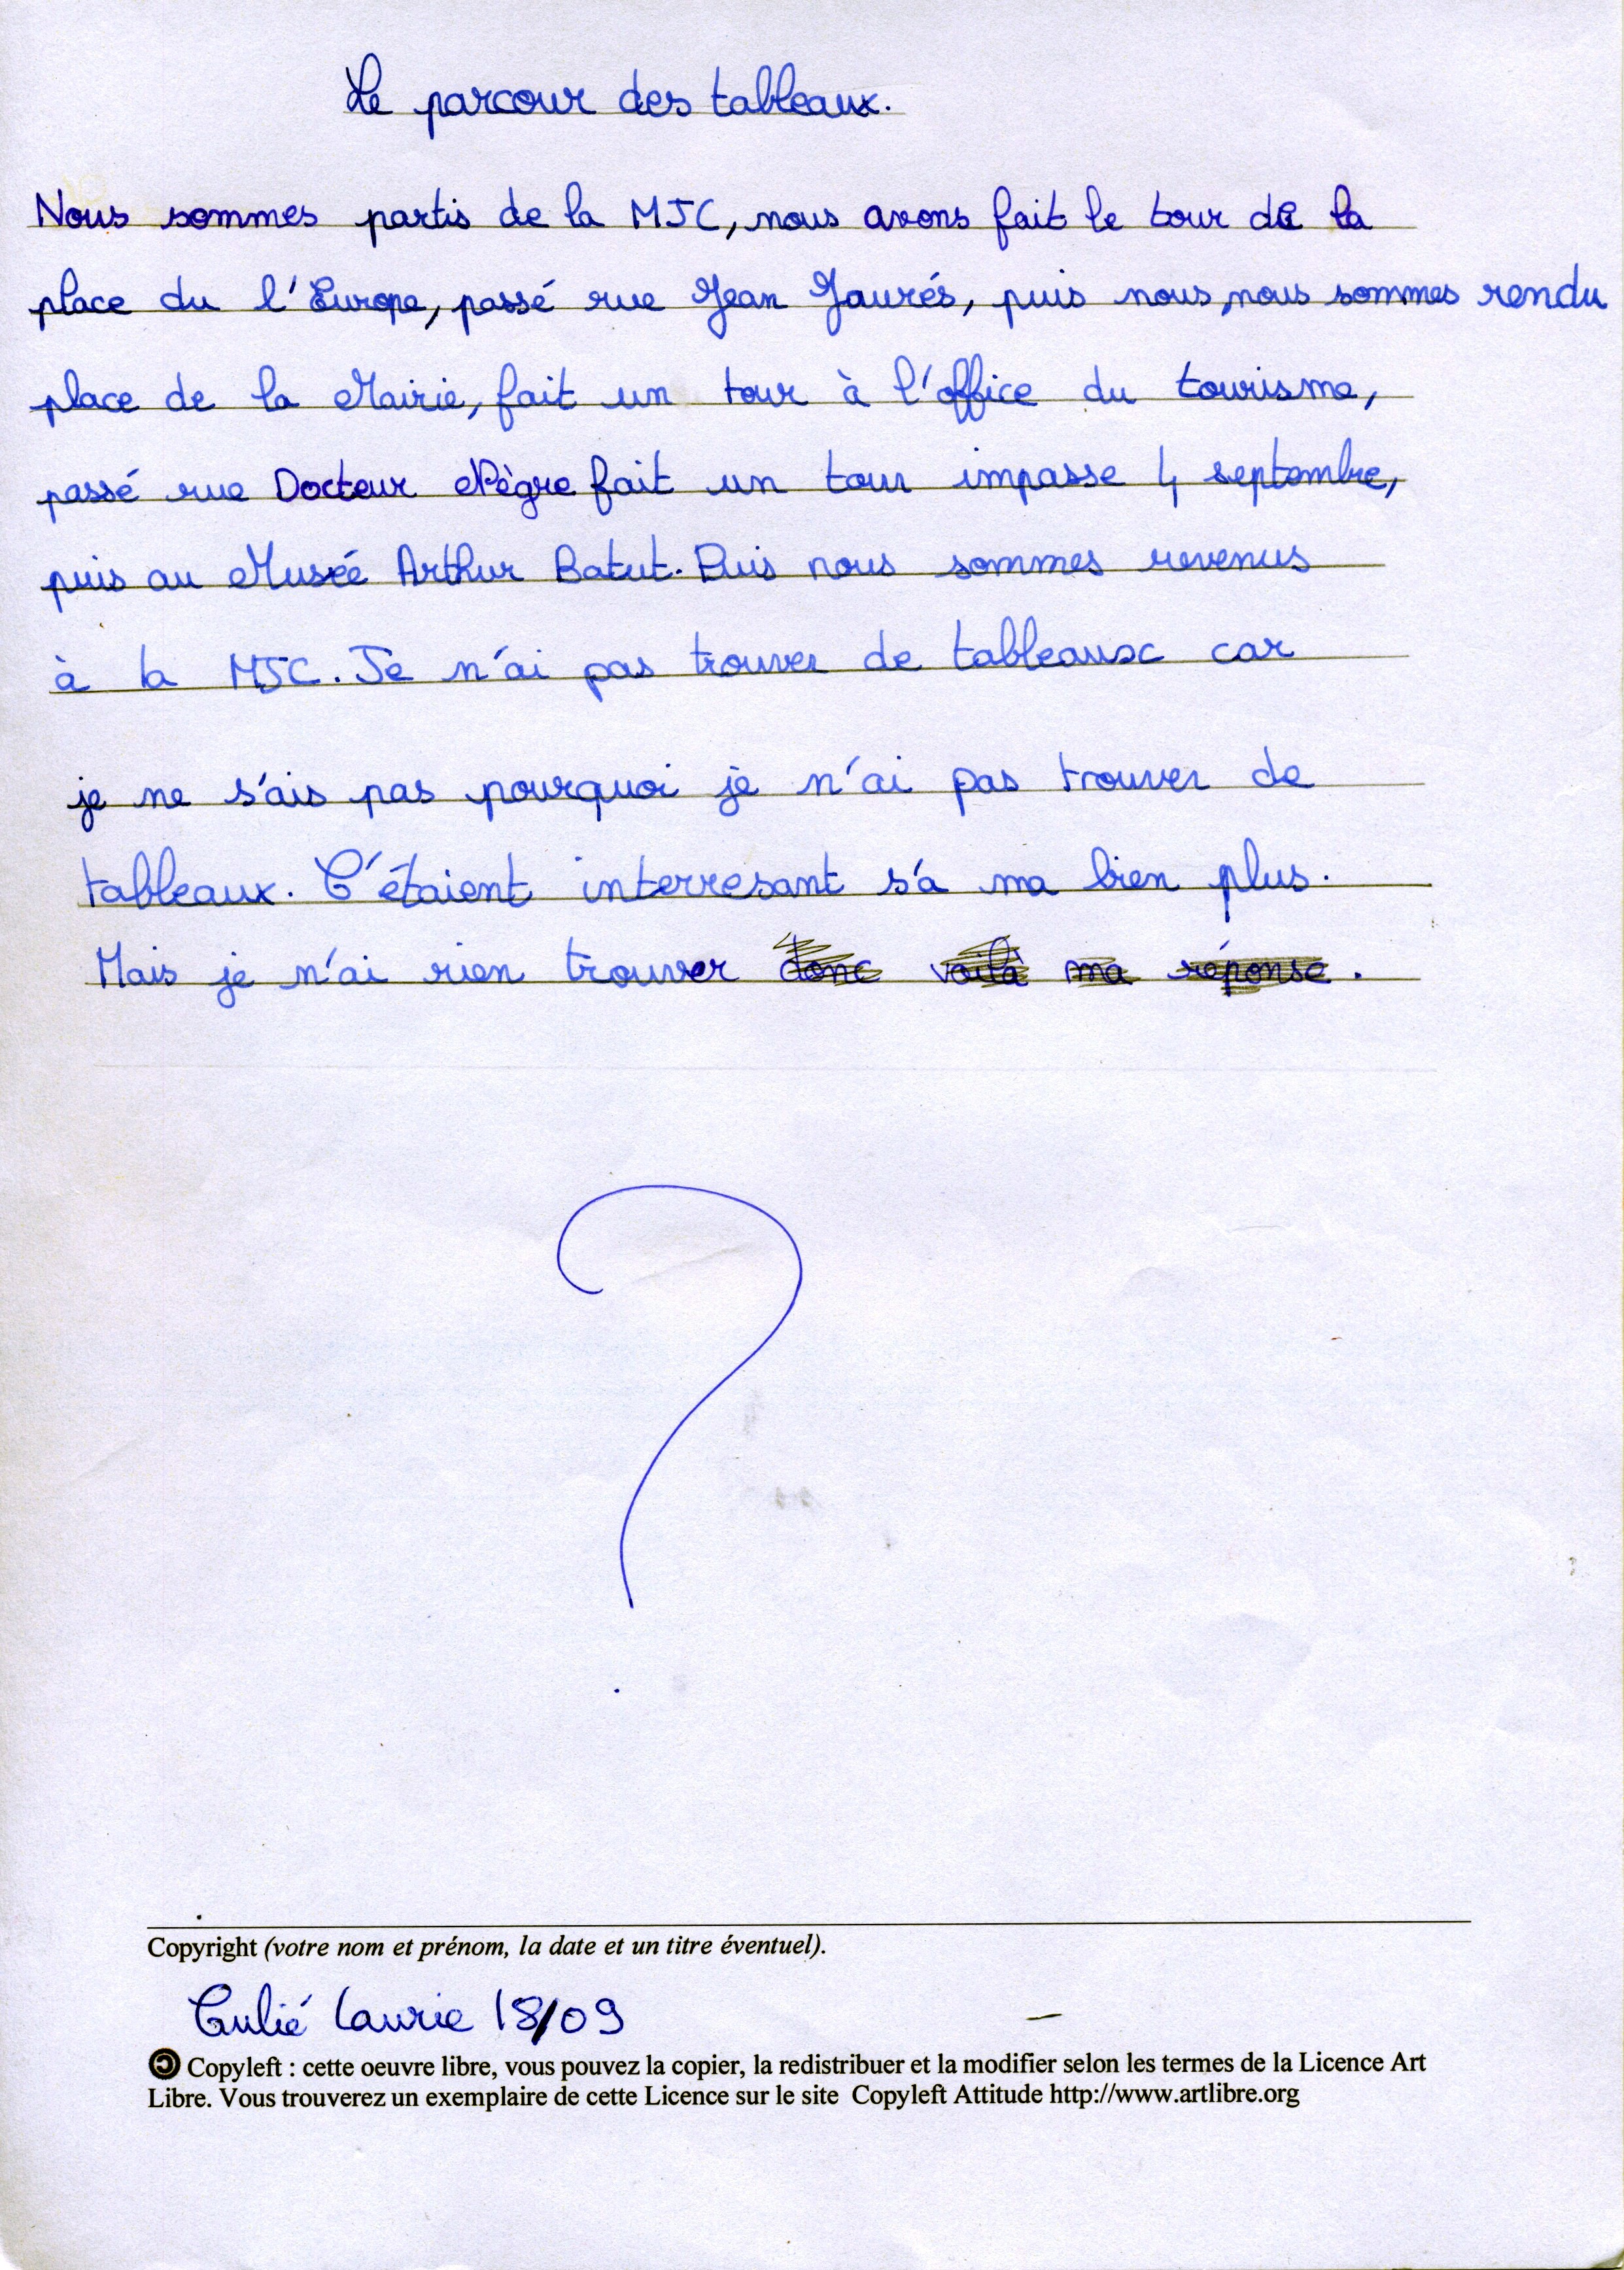 Le parcour des tableaux.
Nous sommes partis de la MJC, nous avons fait le tour de la
place du l'Europe, passé rue Jean Jaurés, puis nous, nous sommes rendu
place de la Mairie, fait un tour à l'office du tourisme,
passé rue Docteur Nègre fait un tour impasse 4 septembre,
puis au Musée Arthur Batut. Puis nous sommes revenus
à la MJC. Je n'ai pas trouver de tableaux car
je ne s'ais pas pourquoi je n'ai pas trouver de
tableaux. C'étaient interresant s'a ma bien plus.
Mais je n'ai rien trouver donc voilà ma réponse.
?
Copyright (votre nom et prénom, la date et un titre éventuel).
Culié Laurie 18/09
Copyleft : cette oeuvre libre, vous pouvez la copier, la redistribuer et la modifier selon les termes de la Licence Art
Libre. Vous trouverez un exemplaire de cette Licence sur le site Copyleft Attitude http://www.artlibre.org